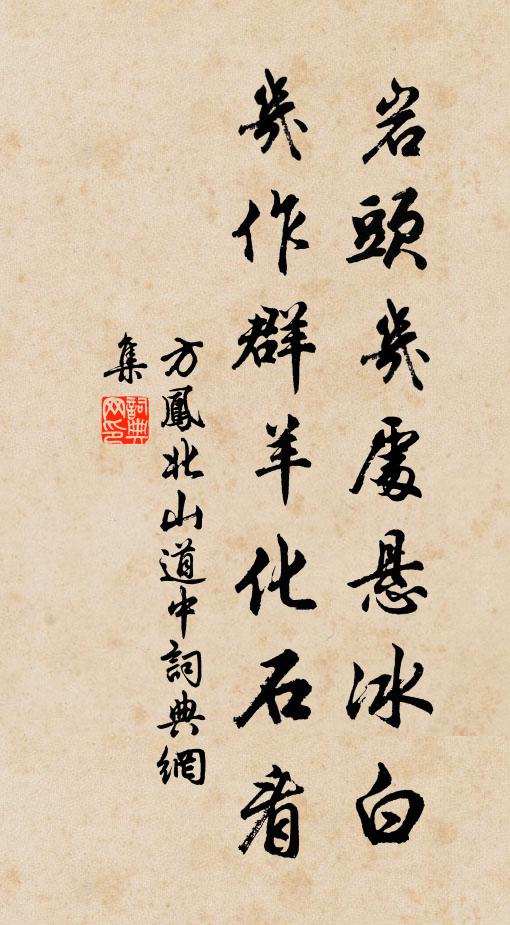 岩頭幾處懸冰白
幾作群羊化石看
方鳳北山道中詞典網
集
詞典网印